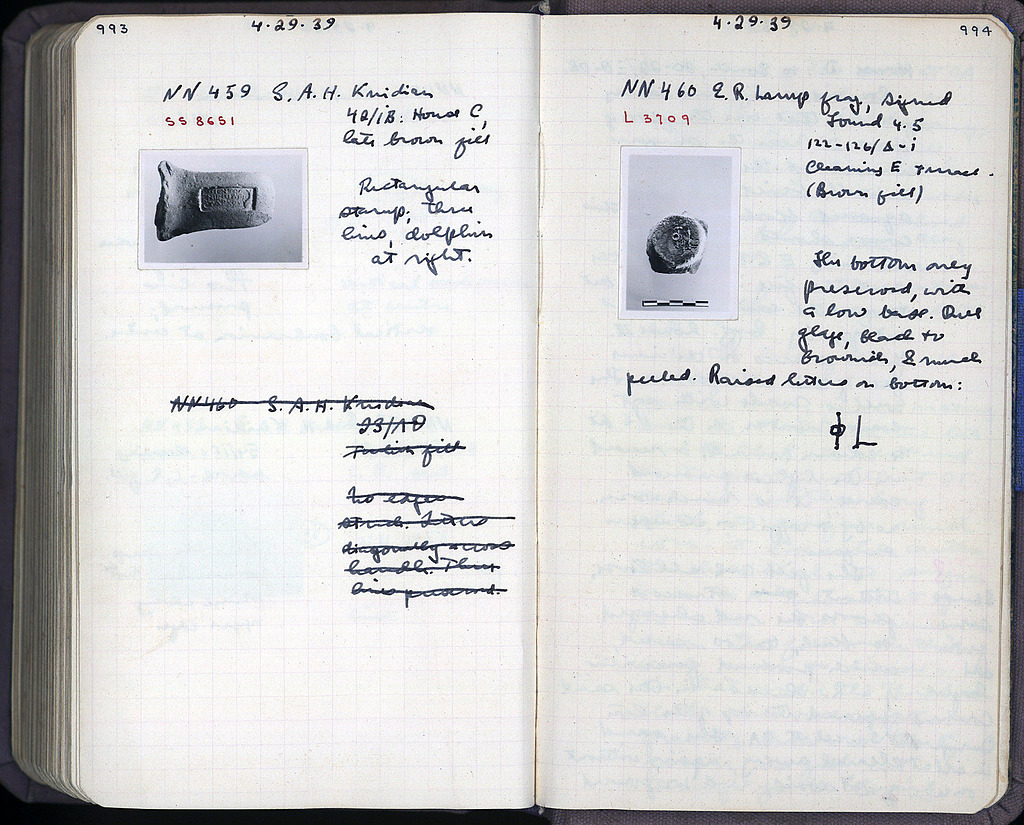 993
4·29·39
NN 459 S.A.H. Knidian
SS 8651
40/ΙΒ: House C,
late brown fill
Rectangular
stamp, three
lines, dolphin
at right.
NN 460 S.A.H. Knidian
fill
No edges
struck. Letters
diagonally across
handle. Three
lines preserved.
4·29·39
994
NN 460 E.R. Lamp frag, signed
L 3709
Found 4.5
122-126/Δ-
Cleaning E terrace.
(Brown fill)
The bottom only
preserved, with
a low base. Dull
glaze, black to
brownish, & much
peeled. Raised letters on bottom:
ϕ L